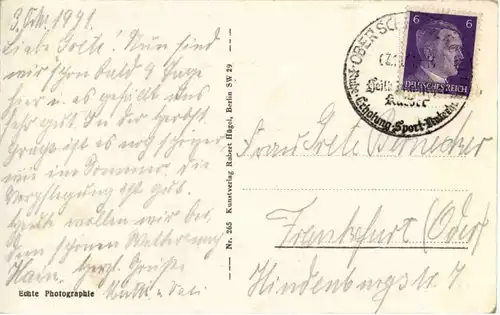 3. Okt. 1941.
Liebe Grete! Nun sind
wir schon bald 4 Tage
hier u. es gefällt uns
sehr gut. In der Herbst
ist es noch schöner
wie im Sommer. Die
Verpflegung ist gut.
Heute wollen wir bei
dem schönen Wetter nach
Hain. Herzl. Grüße
Echte Photographie
Nr. 265 Kunstverlag Robert Hügel, Berlin SW 29
OBER SCH
Erholung Sport
6 6
DEUTSCHES REICH
Frau Grete
Frankfurt (Oder)
Hindenburgstr. 7.